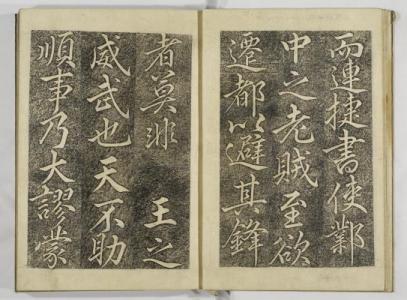 而連捷書使鄴
中之老賊至欲
遷都以避其鋒
者莫非　王之
威武也天不助
順事乃大謬蒙